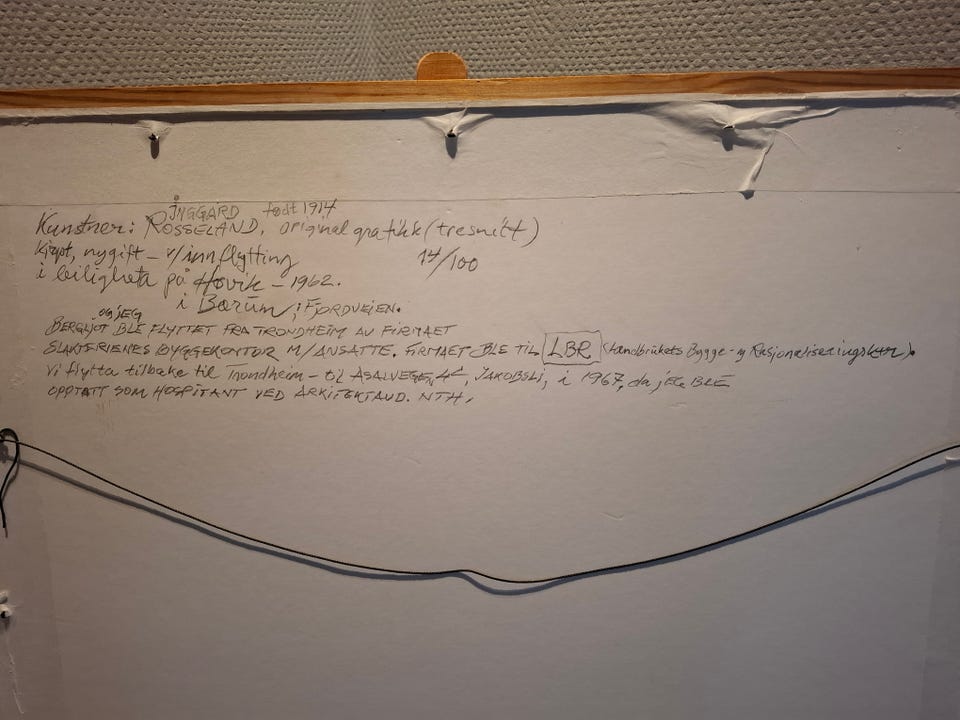 INGGARD født 1914
Kunstner: ROSSELAND, original grafikk (tresnitt)
Kjøpt, nygift - v/innflytting 14/100
i leiligheta på Høvik - 1962.
i Bærum, i FJORDVEIEN.
og jEG
BERGLJOT BLE FLYTTET FRA TRONDHEIM AV FIRMAET
SLAKTERIENES BYGGEKONTOR M/ANSATTE. FIRMAET BLE TIL LBR (Landbrukets Bygge- og Rasjonaliseringskontor).
Vi flytta tilbake til Trondheim - til ÅSALVEGEN JAKOBSLI, i 1967, da jEG BLE
OPPTATT SOM HOSPITANT VED ARKITEKTAVD. NTH.